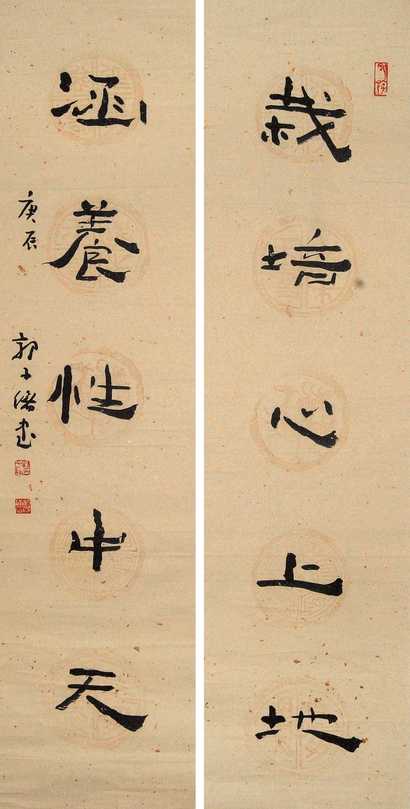 栽培心上地
涵養性中天
庚辰
郭子緒書